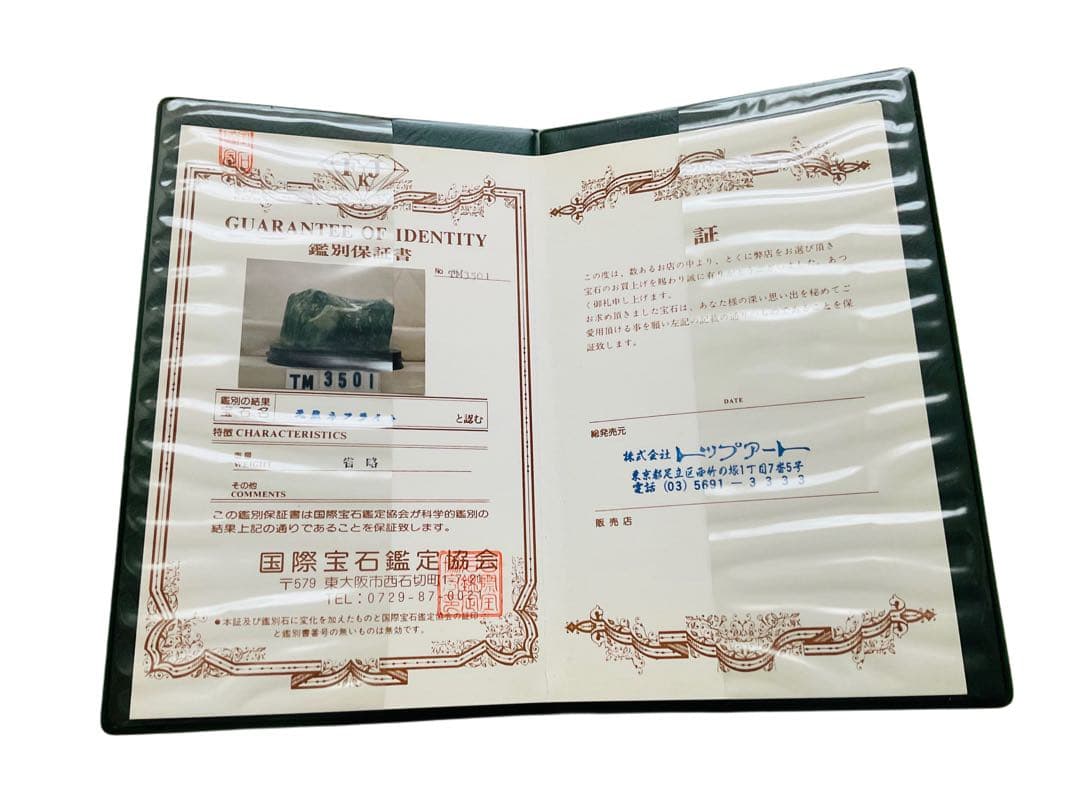 GUARANTEE OF IDENTITY
鑑別保証書
No TM3501
TM 3501
鑑別の結果
宝石名 天然ネフライト と認む
特徴 CHARACTERISTICS
重量
WEIGHT 省略
その他
COMMENTS
この鑑別保証書は国際宝石鑑定協会が科学的鑑別の
結果上記の通りであることを保証致します。
国際宝石鑑定協会
〒579 東大阪市西石切町1-7-21
TEL:0729-87-0021
●本証及び鑑別石に変化を加えたものと国際宝石鑑定協会の証印
と鑑別書番号の無いものは無効です。
証
この度は、数あるお店の中より、とくに弊店をお選び頂き
宝石のお買上げを賜わり誠に有り
ました。あつ
く御礼申し上げます。
お求め頂きました宝石は、あなた様の深い思い出を秘めてご
愛用頂ける事を願い左記の
ことを保
証致します。
DATE
総発売元
株式会社 トップアート
東京都足立区西竹の塚1丁目7番5号
電話 (03) 5691-3333
販売店